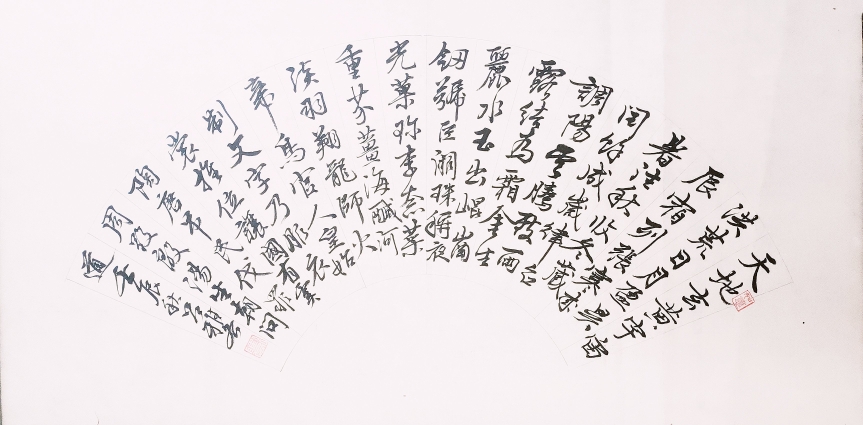 天地玄黃宇宙
洪荒日月盈
辰宿列張寒
暑往秋收冬藏
閏餘成歲律
調陽雲騰致雨
露結為霜金生
麗水玉出崐崗
劍號巨闕珠稱夜
光菓珍李柰菜
重芥薑海醎河
淡羽翔龍師火
帝鳥官人皇始
制文字乃服衣
裳推位讓國有虞
陶唐弔民伐罪
周發殷湯坐朝問
道